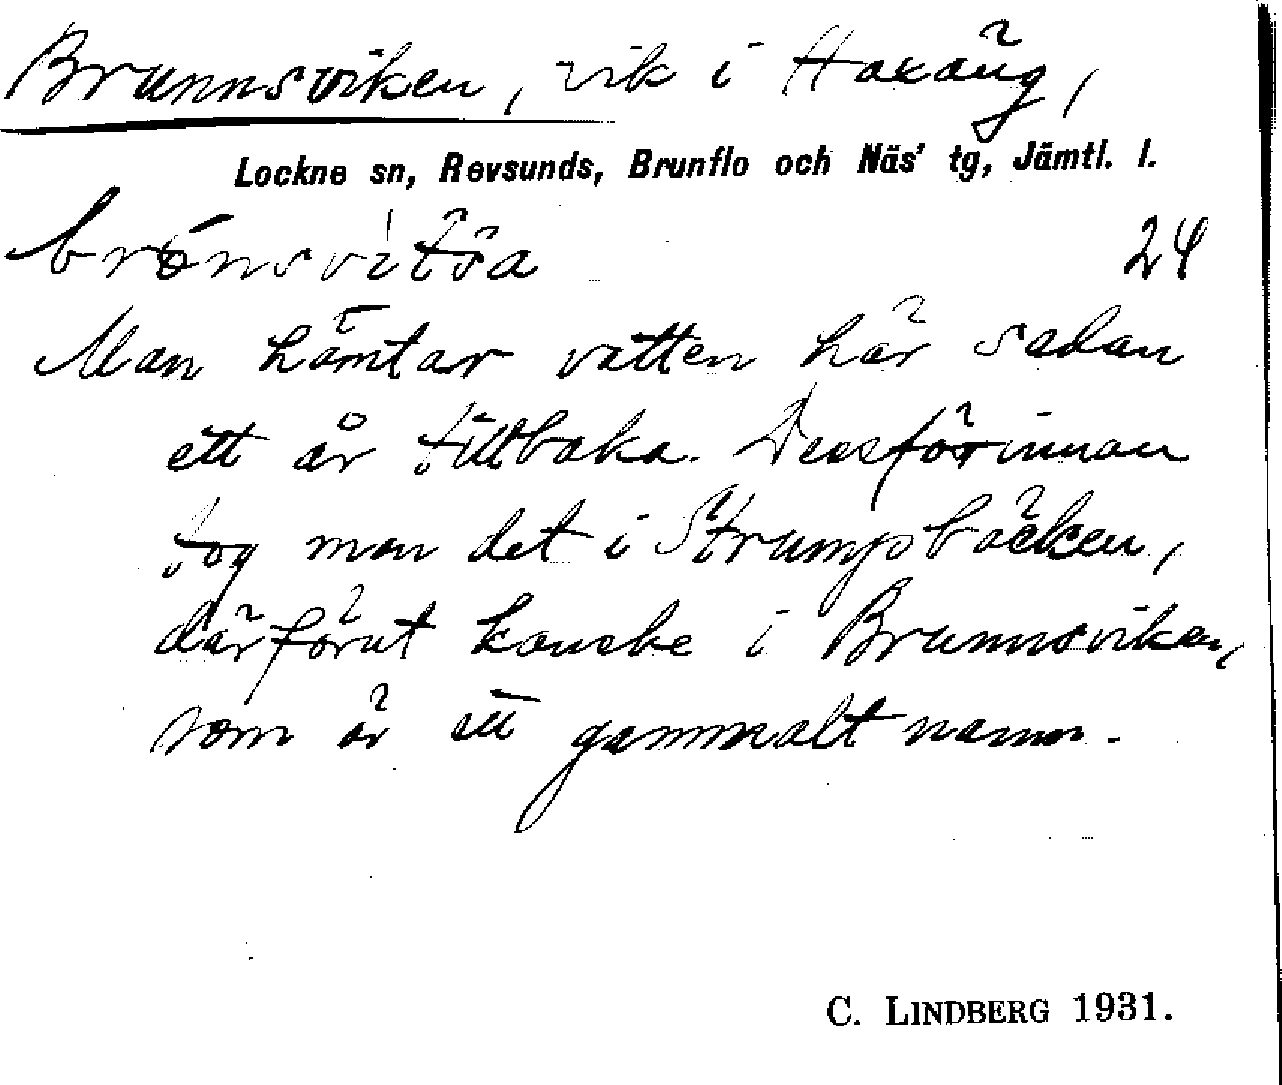 Brunnsviken, vik i Haxäng,
Lockne sn, Revsunds, Brunflo och Näs' tg, Jämtl. l.
24
Man hämtar vatten här sedan
ett år tillbaka. Dessförinnan
tog man det i Strumpbäcken,
därförut kanske i Brunnsviken,
som är ett gammalt namn.
C. LINDBERG 1931.